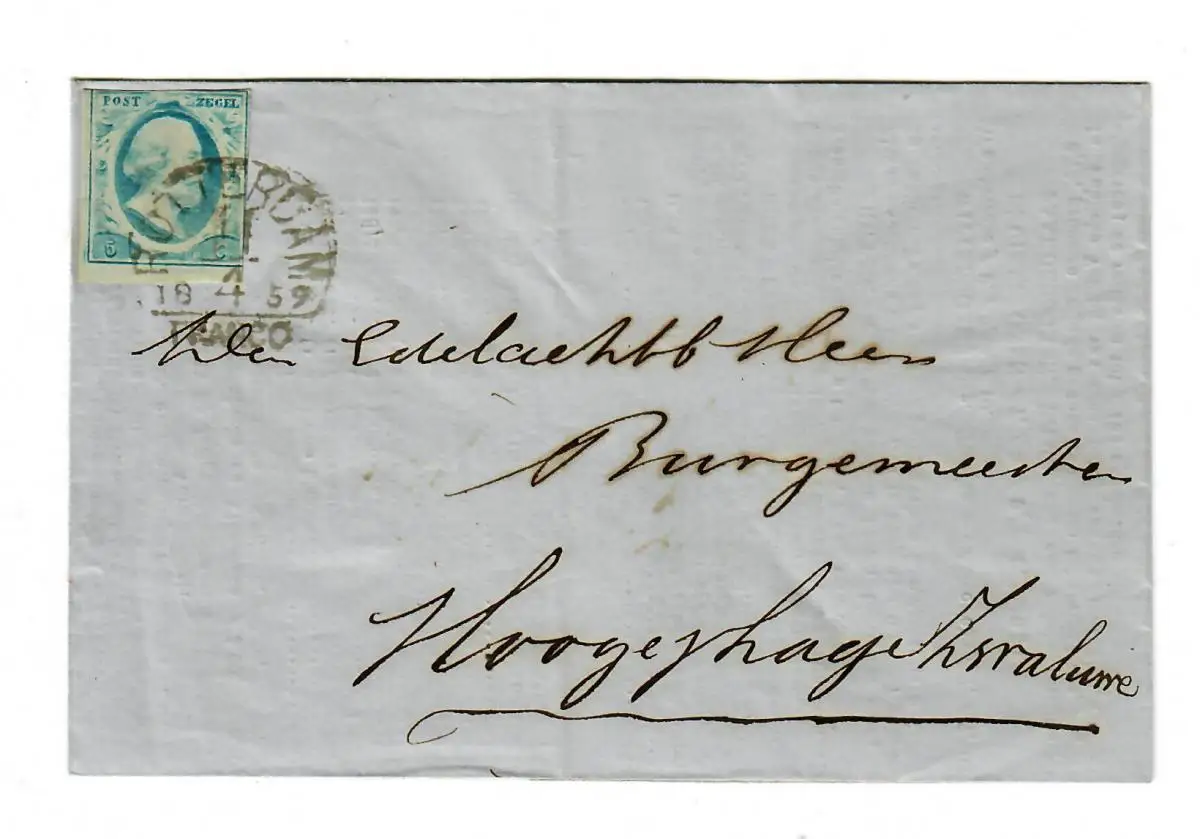 POST ZEGEL
5 C
ROTTERDAM
18 4 59
FRANCO
Den Edelachtb Heer
Burgemeester
Hooge